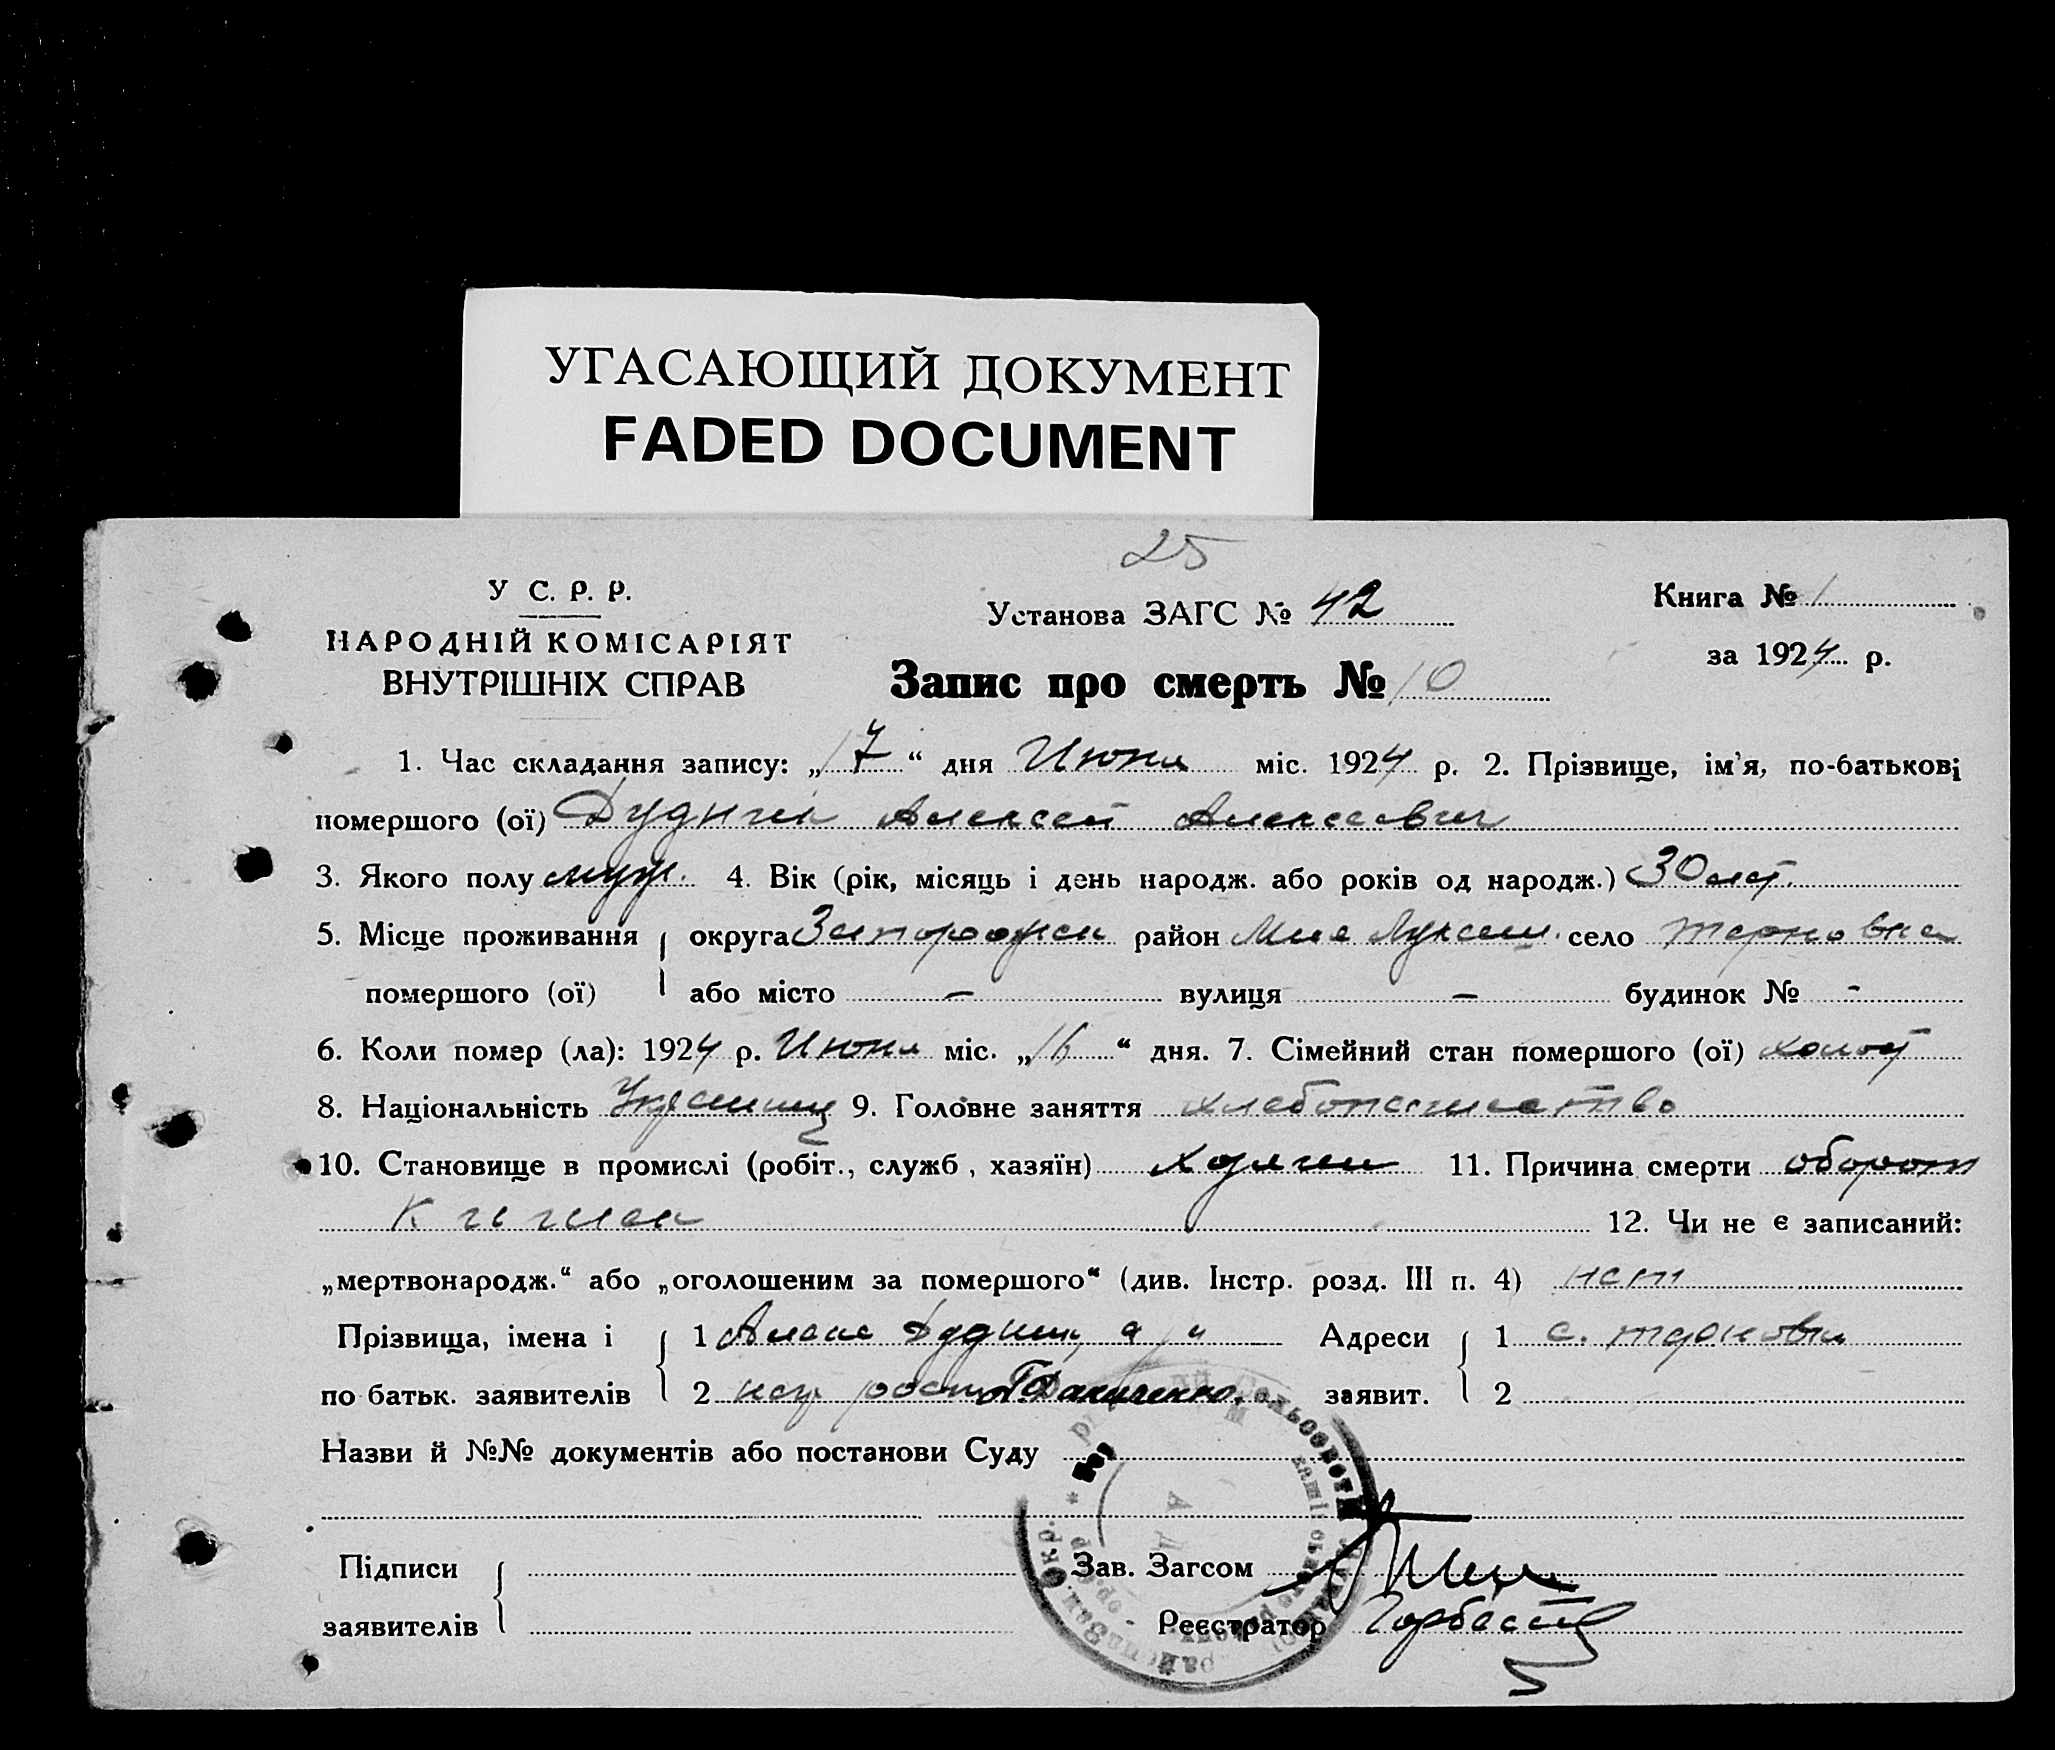 УГАСАЮЩИЙ ДОКУМЕНТ
FADED DOCUMENT
25
У С. Р. Р.
НАРОДНІЙ КОМІСАРІЯТ
ВНУТРІШНІХ СПРАВ
Установа ЗАГС № 42
Запис про смерть № 10
Книга № 1
за 1924 р.
1. Час складання запису: „17“ дня Июня міс. 1924 р. 2. Прізвище, ім'я, по-батькові
помершого (ої) Дудник Алексей Алексеевич
3. Якого полу муж. 4. Вік (рік, місяць і день народж. або років од народж.) 30 лет.
5. Місце проживання округа Запорожск район село Терновка
помершого (ої) або місто — вулиця — будинок № -
6. Коли помер (ла): 1924 р. Июня міс. „16“ дня. 7. Сімейний стан помершого (ої) холост
8. Національність Украинец 9. Головне заняття хлебопашество
10. Становище в промислі (робіт., служб, хазяїн) 11. Причина смерти оборот
кишек 12. Чи не є записаний:
„мертвонародж.“ або „оголошеним за помершого“ (див. Інстр. розд. III п. 4) нет
Прізвища, імена і 1 Дудник, а Адреси 1 с. Терновка
по батьк. заявителів 2 заявит. 2
Назви й №№ документів або постанови Суду
Підписи Зав. Загсом
заявителів Реєстратор